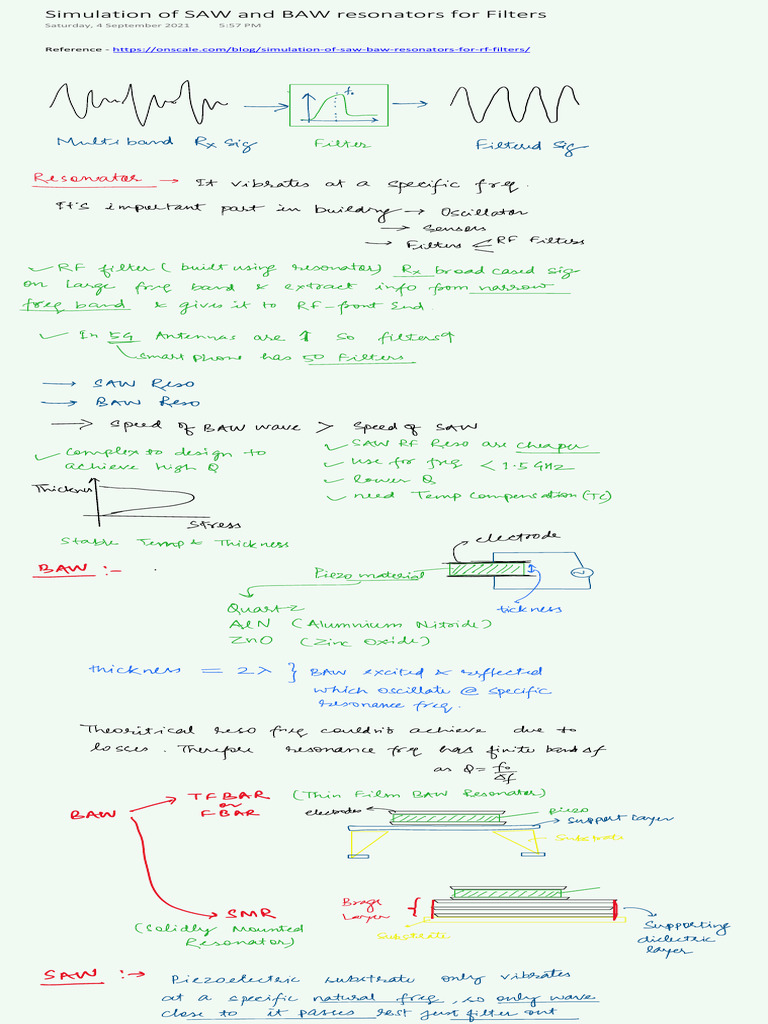 Simulation of SAW and BAW resonators for Filters
Saturday, 4 September 2021 5:57 PM
Reference - https://onscale.com/blog/simulation-of-saw-baw-resonators-for-rf-filters/
f₀
Multiband Rx Sig Filter Filterd Sig
Resonator → It vibrates at a specific freq.
It's important part in building → Oscillator
→ Sensors
→ Filters < RF Filters
✓ RF filter ( built using resonator) Rx broad cased sig
on large freq band & extract info from narrow
freq band & gives it to RF-front End.
✓ In 5G Antennas are ↑ so filters↑
smart phone has 50 Filters
→ SAW Reso
→ BAW Reso
→ Speed of BAW wave > Speed of SAW
✓ complex to design to
achieve high Q
✓ SAW RF Reso are cheaper
✓ use for freq < 1.5 GHz
✓ lower Q
✓ need Temp compensation (TC)
Thicknes
Stress
Stable Temp & Thickness
electrode
BAW :-
Piezo material
tickness
Quartz
AlN (Alumnium Nitroide)
ZnO (Zinc Oxide)
thickness = 2λ } BAW excited & reflected
which oscillate @ specific
resonance freq.
Theoritical reso freq couldn't achieve due to
losses. Therefore resonance frq has finite band Δf
as Q = f₀/Δf
BAW
TFBAR (Thin Film BAW Resonator)
or
FBAR
electrodes
Piezo
support layer
Substrate
SMR
(Solidly Mounted
Resonator)
Brage
Layer
Substrate
Supporting
dielectric
layer
SAW :→ Piezoelectric substrate only vibrates
at a specific natural freq, so only wave
close to it passes rest just filter out